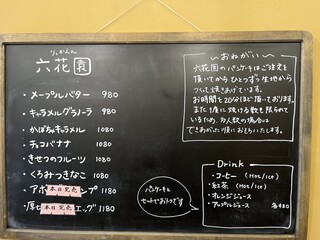 りっかえん
六花園
・メープルバター 980
・キャラメルグラノーラ 980
・かぼちゃキャラメル 1080
・チョコバナナ 1080
・きせつのフルーツ 1080
・くるみつきなこ 1180
・アボ 本日完売 ンプ 1180
・厚ピ 本日完売 エッグ 1180
～おねがい～
六花園のパンケーキはご注文を
頂いてから ひとつずつ 生地から
つくって焼きあげています。
お時間を20分ほど頂いております。
また1度に焼ける数も限られて
いるため、多人数の場合は
できあがった順にお出しいたします。
パンケーキと
セットでおトクです
Drink
・コーヒー (HOT/ICE)
・紅茶 (HOT/ICE)
・オレンジジュース
・アップルジュース 各480